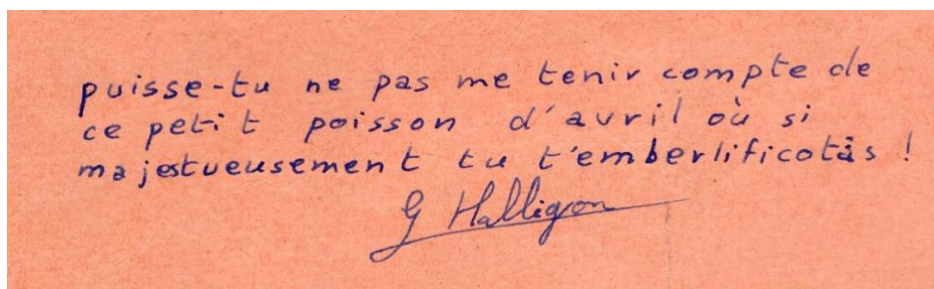 puisse-tu ne pas me tenir compte de
ce petit poisson d'avril où si
majestueusement tu t'emberlificotàs !
G Halligon